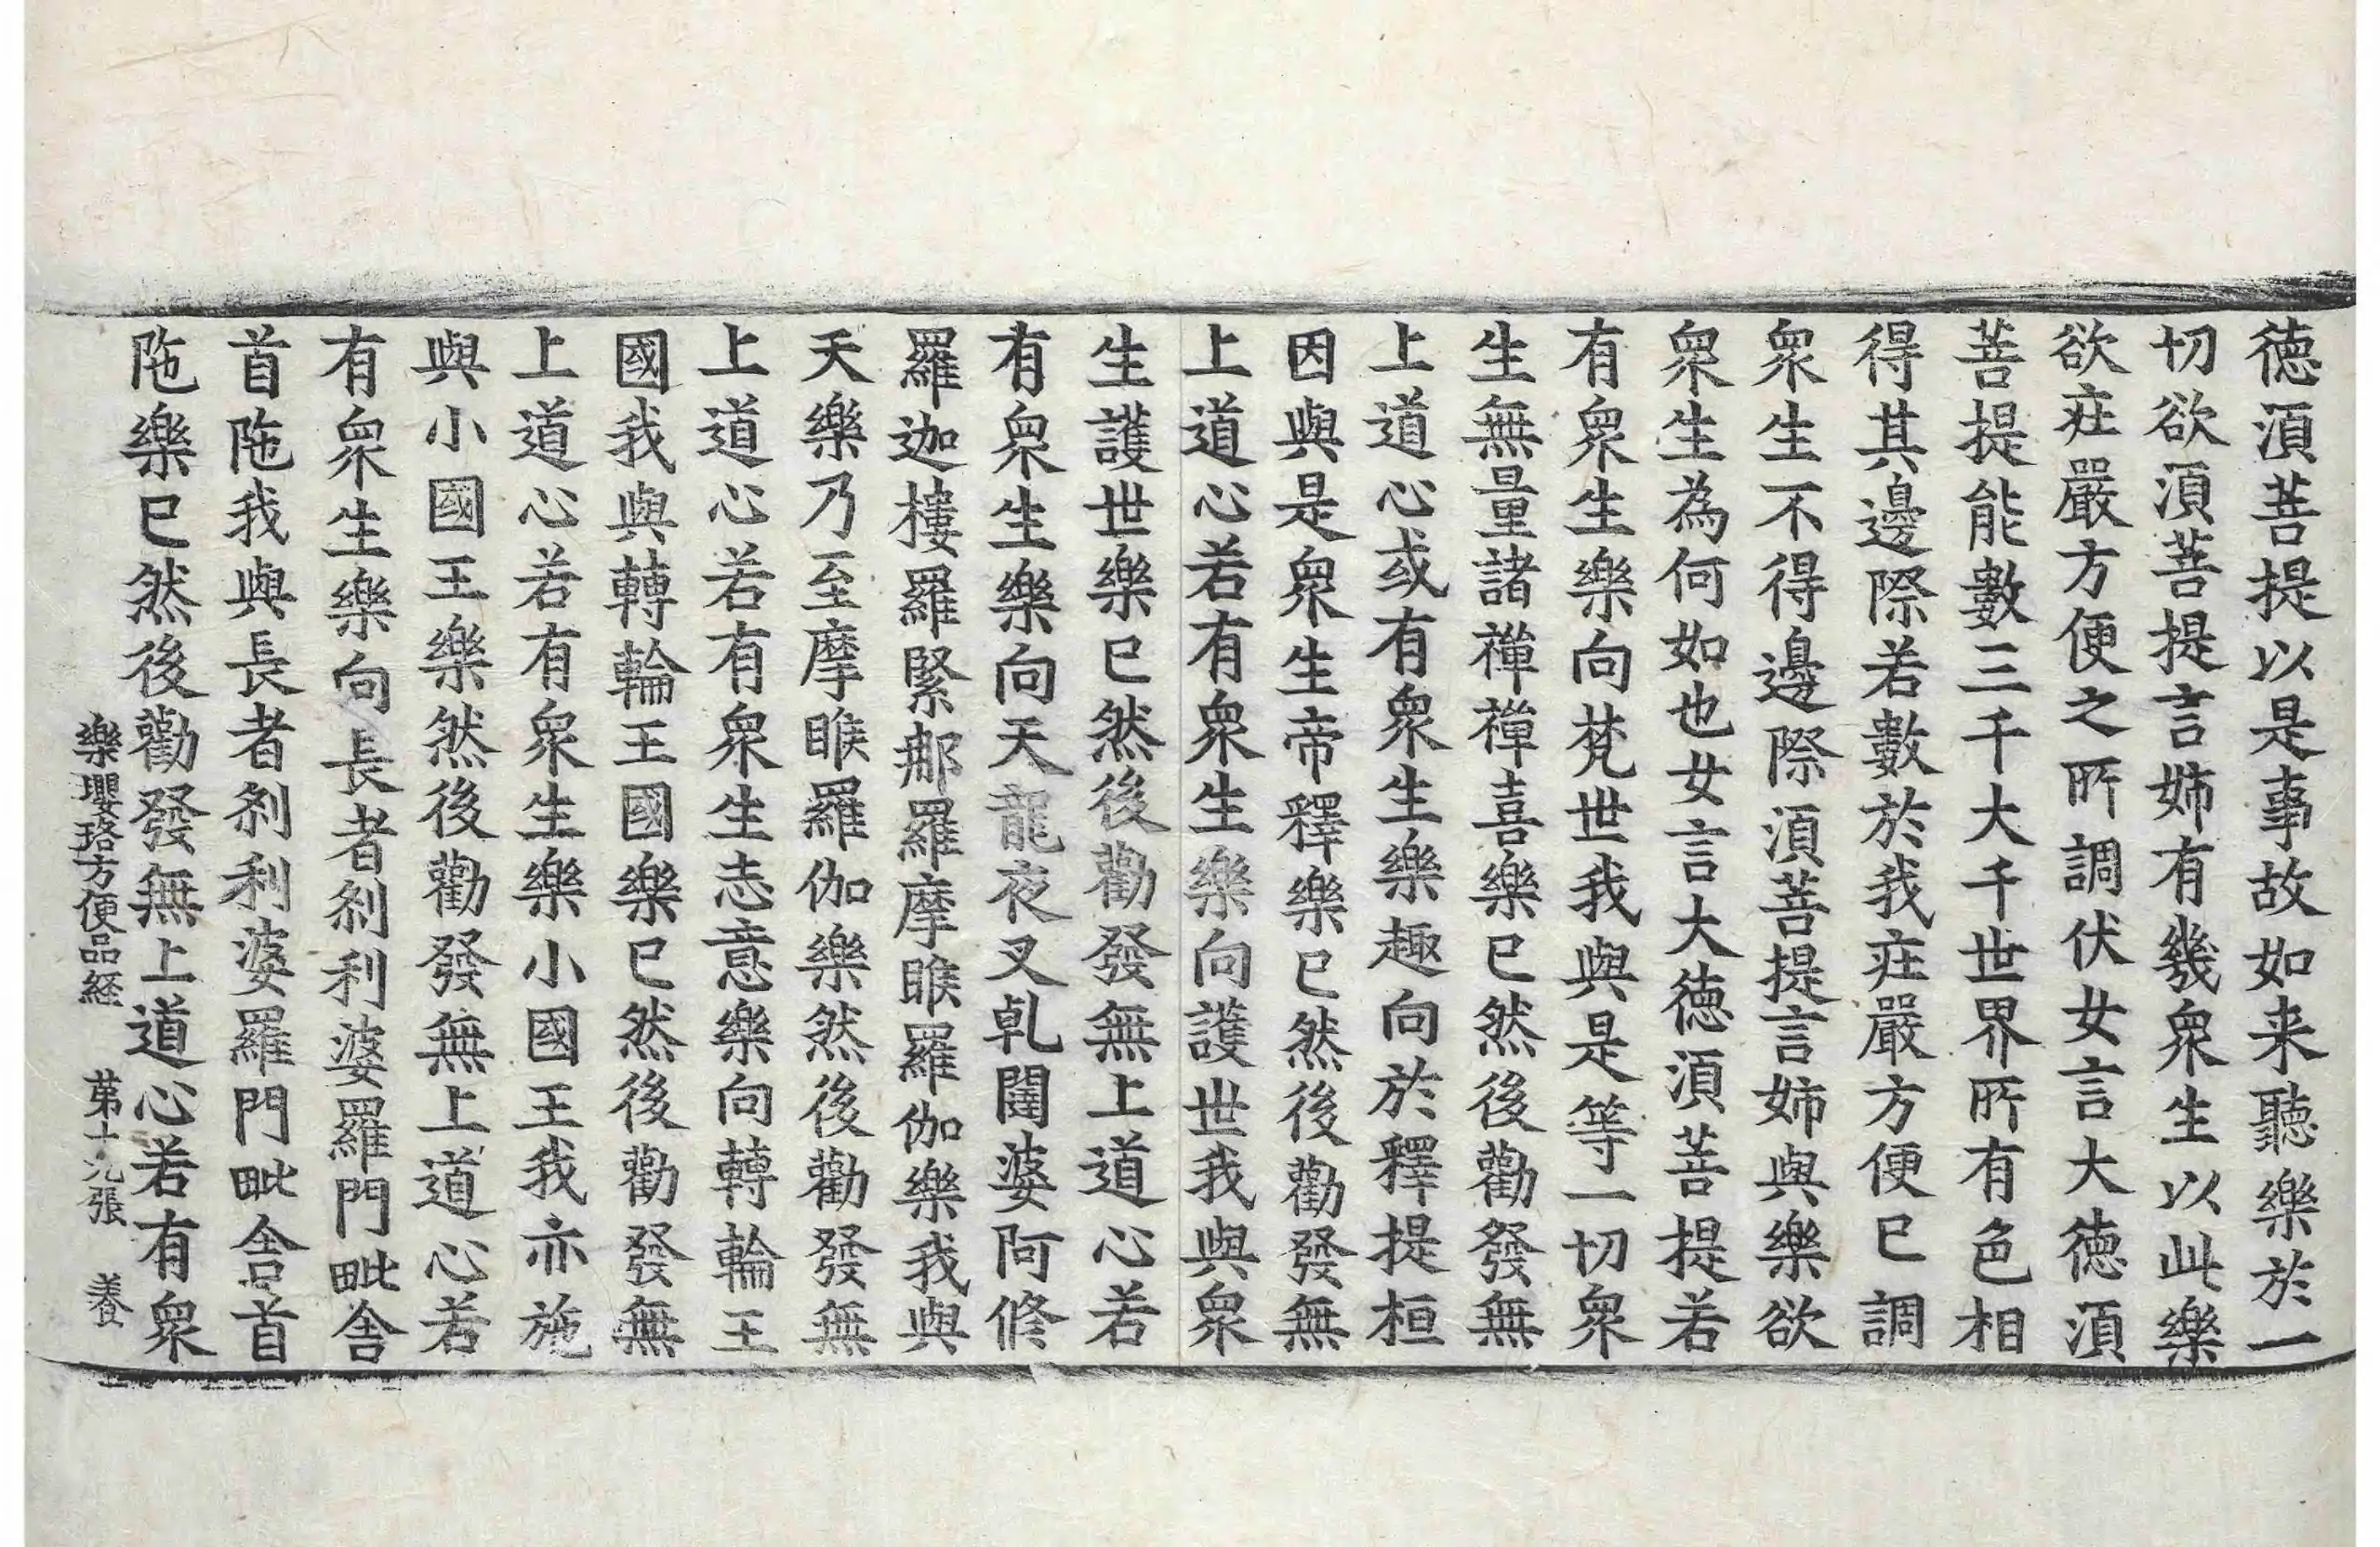 徳湏菩提以是事故如来聽樂於一
切欲湏菩提言姉有幾衆生以此樂
欲庄嚴方便之所調伏女言大徳湏
菩提能數三千大千世界所有色相
得其邊際若數於我庄嚴方便已調
衆生不得邊際湏菩提言姉與樂欲
衆生為何如也女言大徳湏菩提若
有衆生樂向梵世我與是等一切衆
生無量諸禪禪喜樂已然後勸發無
上道心或有衆生樂趣向於釋提桓
因與是衆生帝釋樂已然後勸發無
上道心若有衆生樂向護世我與衆
生護世樂已然後勸發無上道心若
有衆生樂向天龍夜叉乹闥婆阿修
羅迦樓羅緊那羅摩睺羅伽樂我與
天樂乃至摩睺羅伽樂然後勸發無
上道心若有衆生志意樂向轉輪王
國我與轉輪王國樂已然後勸發無
上道心若有衆生樂小國王我亦施
與小國王樂然後勸發無上道心若
有衆生樂向長者剎利婆羅門毗舎
首陁我與長者剎利婆羅門毗舎首
陁樂已然後勸發無上道心若有衆
樂瓔珞方便品経 苐十九張 養